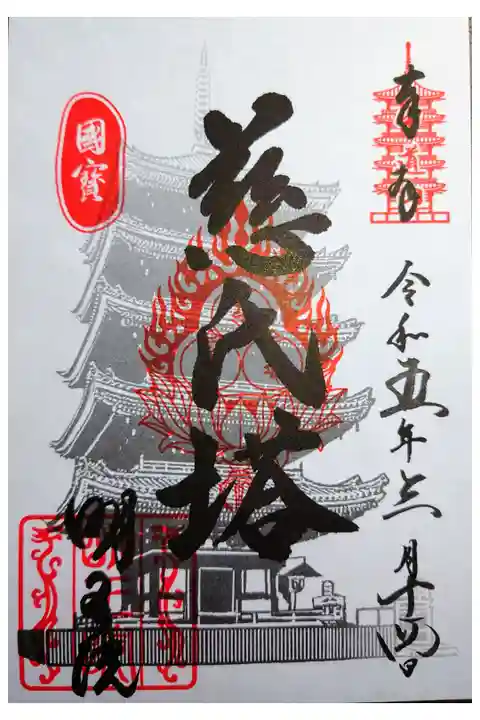 奉拝
令和五年
月十四日
慈氏塔
國寶
明王院